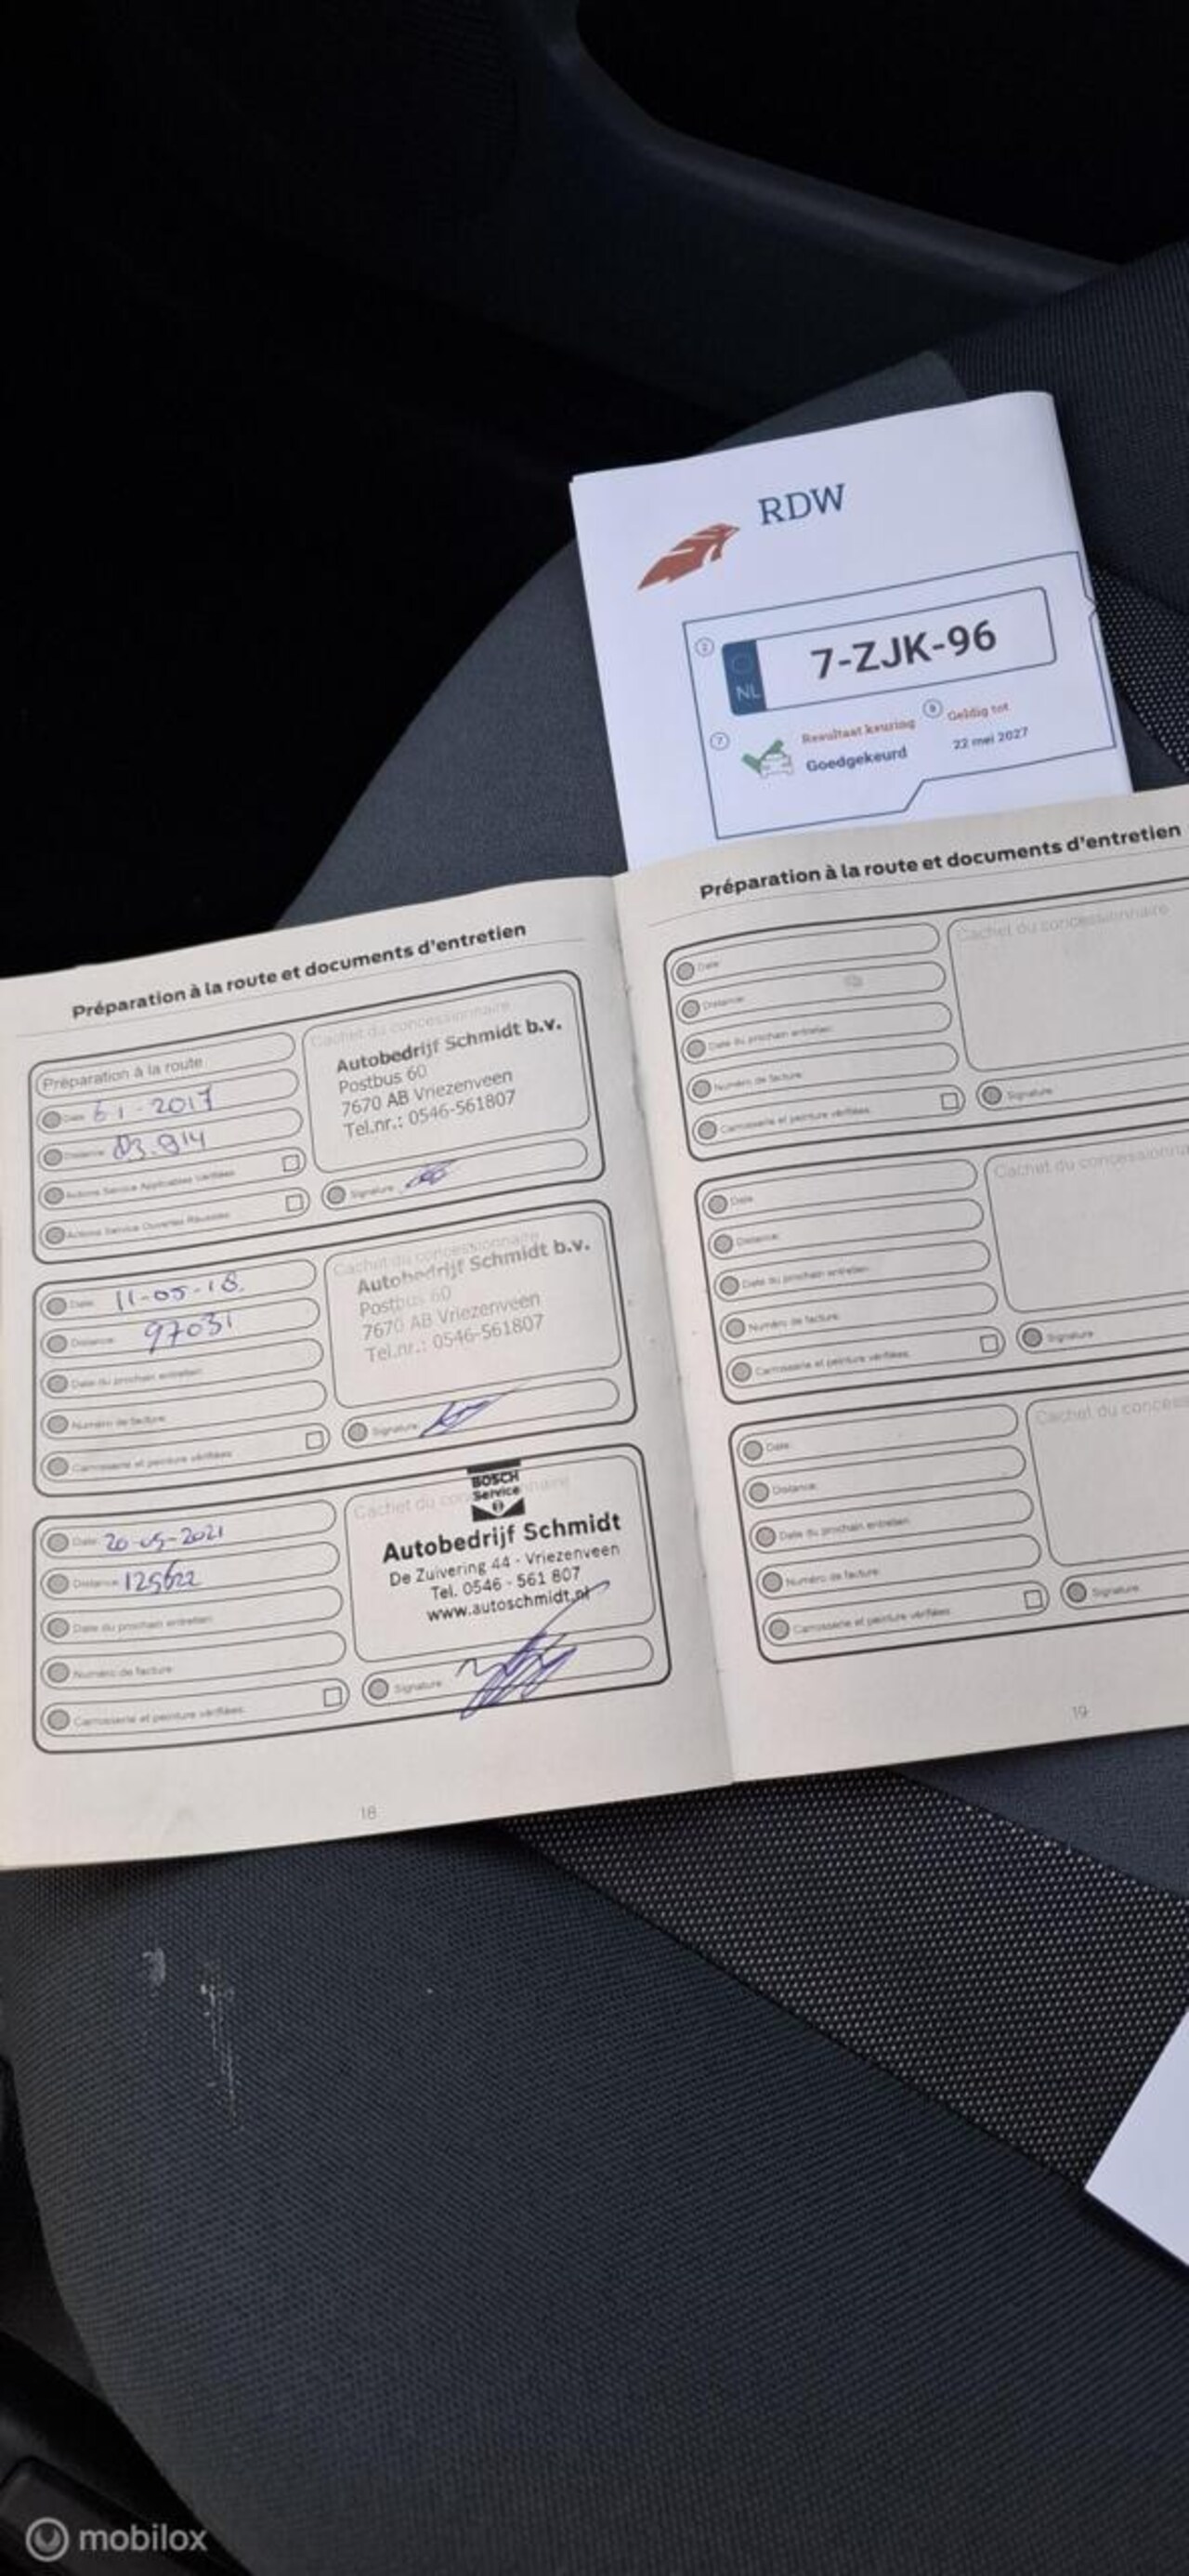 RDW
2
NL
7-ZJK-96
7
Resultaat keuring
Goedgekeurd
8
Geldig tot
22 mei 2027
Préparation à la route et documents d'entretien
Préparation à la route
Date: 6 1 - 2017
Distance: 83.914
Actions Service Applicables Vérifiées
Actions Service Ouvertes Réussies
Cachet du concessionnaire
Autobedrijf Schmidt b.v.
Postbus 60
7670 AB Vriezenveen
Tel.nr.: 0546-561807
Signature
Date: 11-05-18
Distance: 97031
Date du prochain entretien:
Numéro de facture
Carrosserie et peinture vérifiées
Cachet du concessionnaire
Autobedrijf Schmidt b.v.
Postbus 60
7670 AB Vriezenveen
Tel.nr.: 0546-561807
Signature
Date: 20-05-2021
Distance: 125622
Date du prochain entretien:
Numéro de facture
Carrosserie et peinture vérifiées
BOSCH
Service
Cachet du concessionnaire
Autobedrijf Schmidt
De Zuivering 44 - Vriezenveen
Tel. 0546 - 561 807
www.autoschmidt.nl
Signature
18
Préparation à la route et documents d'entretien
Date:
Distance:
Date du prochain entretien:
Numéro de facture
Carrosserie et peinture vérifiées
Cachet du concessionnaire
Signature
Date:
Distance:
Date du prochain entretien:
Numéro de facture
Carrosserie et peinture vérifiées
Cachet du concessionna
Signature
Date:
Distance:
Date du prochain entretien:
Numéro de facture
Carrosserie et peinture vérifiées
Cachet du concess
Signature
19
mobilox